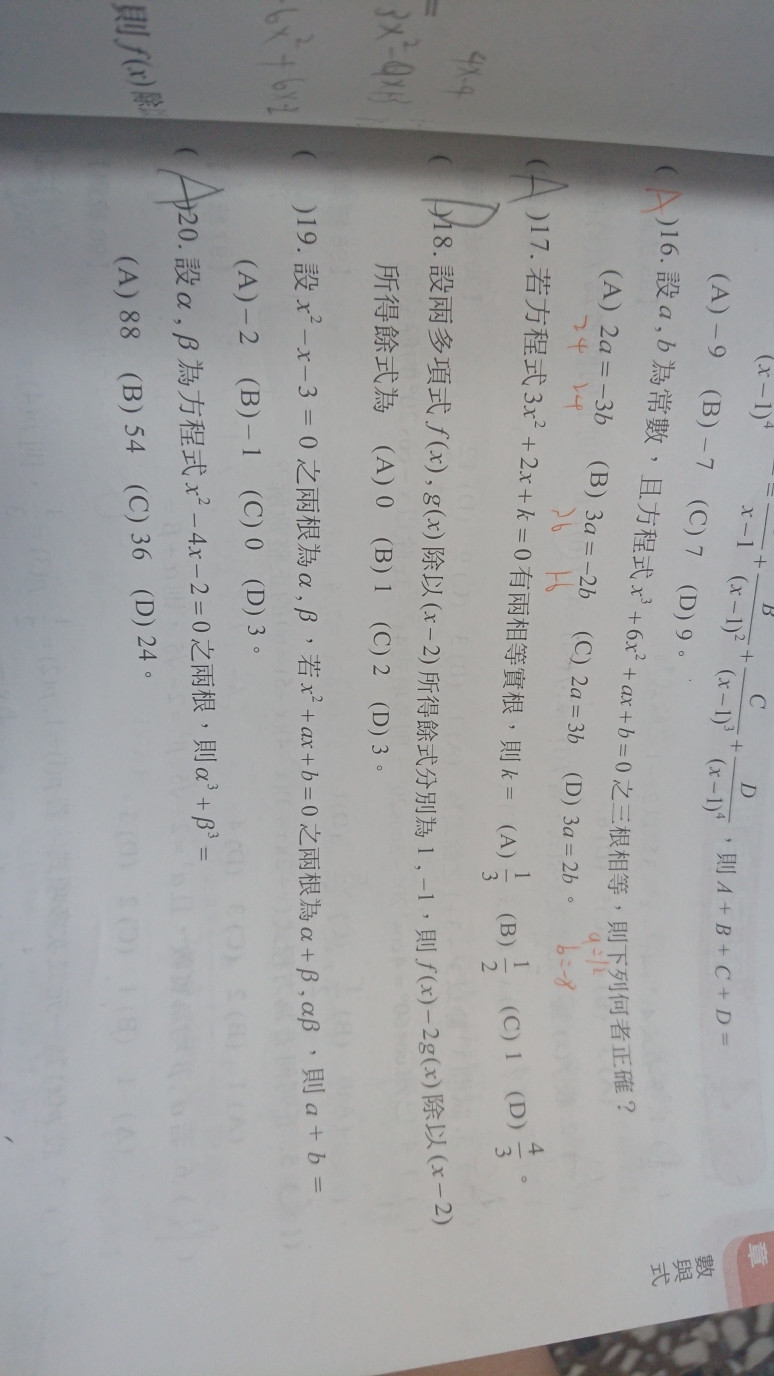 章
數與式
(x−1)⁴ = x−1 + B/(x−1)² + C/(x−1)³ + D/(x−1)⁴，則 A + B + C + D =
(A) −9 (B) −7 (C) 7 (D) 9。
( A )16. 設 a , b 為常數，且方程式 x³ + 6x² + ax + b = 0 之三根相等，則下列何者正確？
(A) 2a = −3b (B) 3a = −2b (C) 2a = 3b (D) 3a = 2b。
24 24 a=12
b=-8
( A )17. 若方程式 3x² + 2x + k = 0 有兩相等實根，則 k = (A) 1/3 (B) 1/2 (C) 1 (D) 4/3。
( D )18. 設兩多項式 f(x) , g(x) 除以 (x − 2) 所得餘式分別為 1 , −1，則 f(x) − 2g(x) 除以 (x − 2)
所得餘式為 (A) 0 (B) 1 (C) 2 (D) 3。
( )19. 設 x² − x − 3 = 0 之兩根為 α , β，若 x² + ax + b = 0 之兩根為 α + β , αβ，則 a + b =
(A) −2 (B) −1 (C) 0 (D) 3。
( A )20. 設 α , β 為方程式 x² − 4x − 2 = 0 之兩根，則 α³ + β³ =
(A) 88 (B) 54 (C) 36 (D) 24。
=
則 f(x) 除